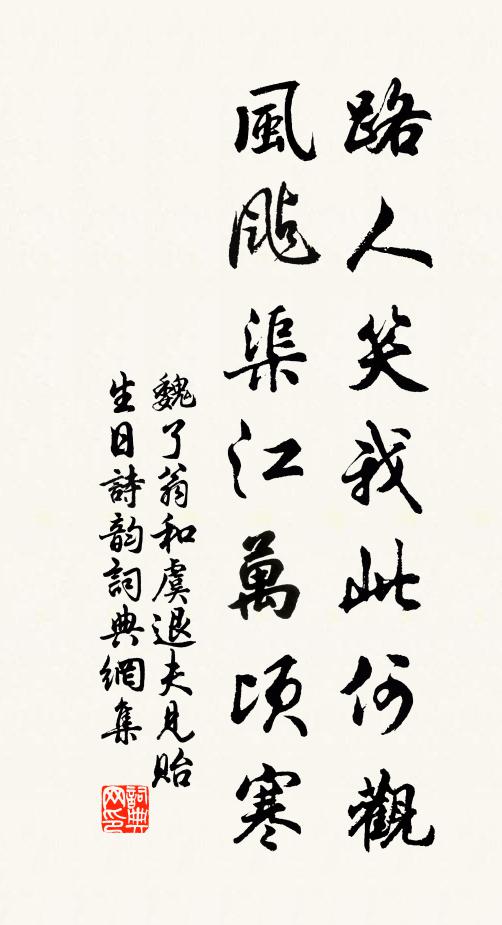 路人笑我此何觀
風颭渠江萬頃寒
魏了翁和虞退夫見貽
生日詩韵詞典網集
詞典網印